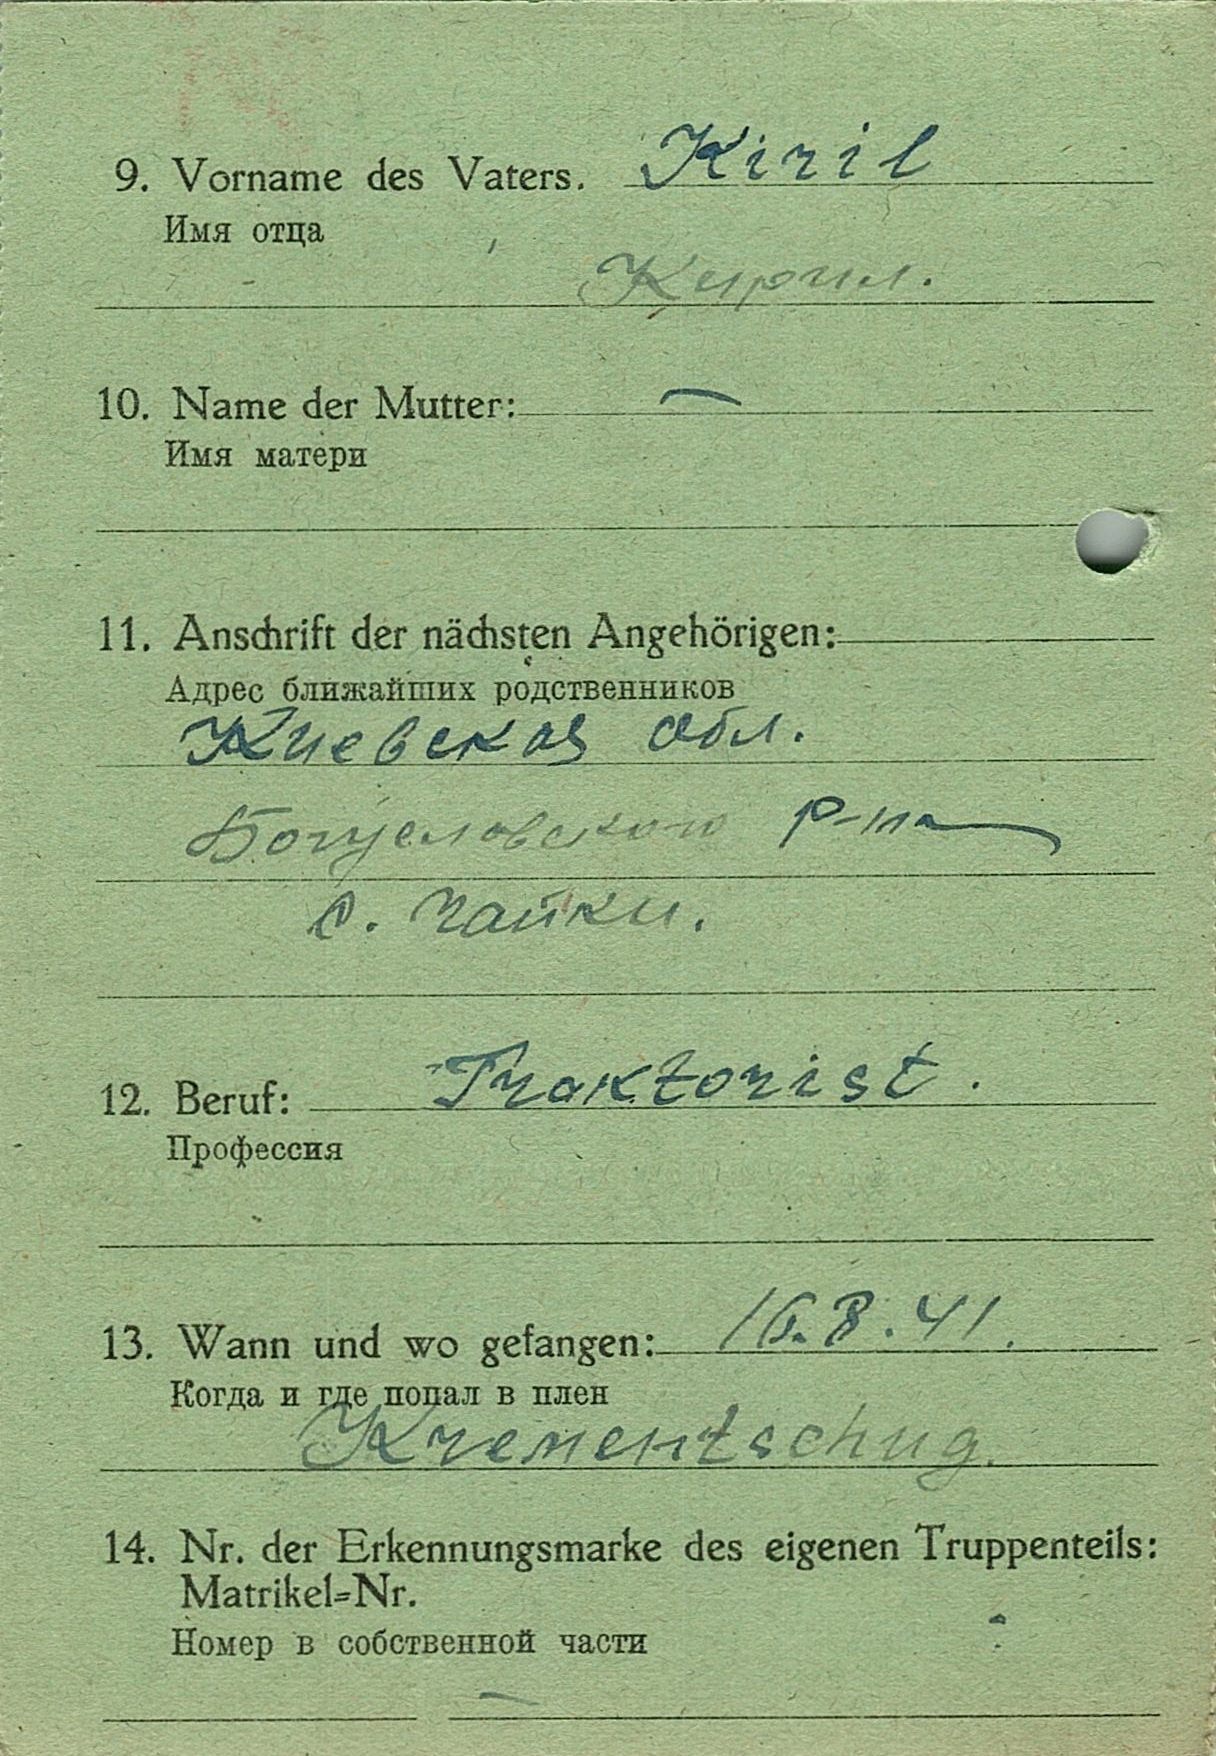 9. Vorname des Vaters. Kiril
Имя отца
Кирил.
10. Name der Mutter: —
Имя матери
11. Anschrift der nächsten Angehörigen:
Адрес ближайших родственников
Киевская обл.
р-на
с. Чайки.
12. Beruf: Traktorist.
Профессия
13. Wann und wo gefangen: 16.8.41.
Когда и где попал в плен
Krementschug.
14. Nr. der Erkennungsmarke des eigenen Truppenteils:
Matrikel-Nr.
Номер в собственной части
—